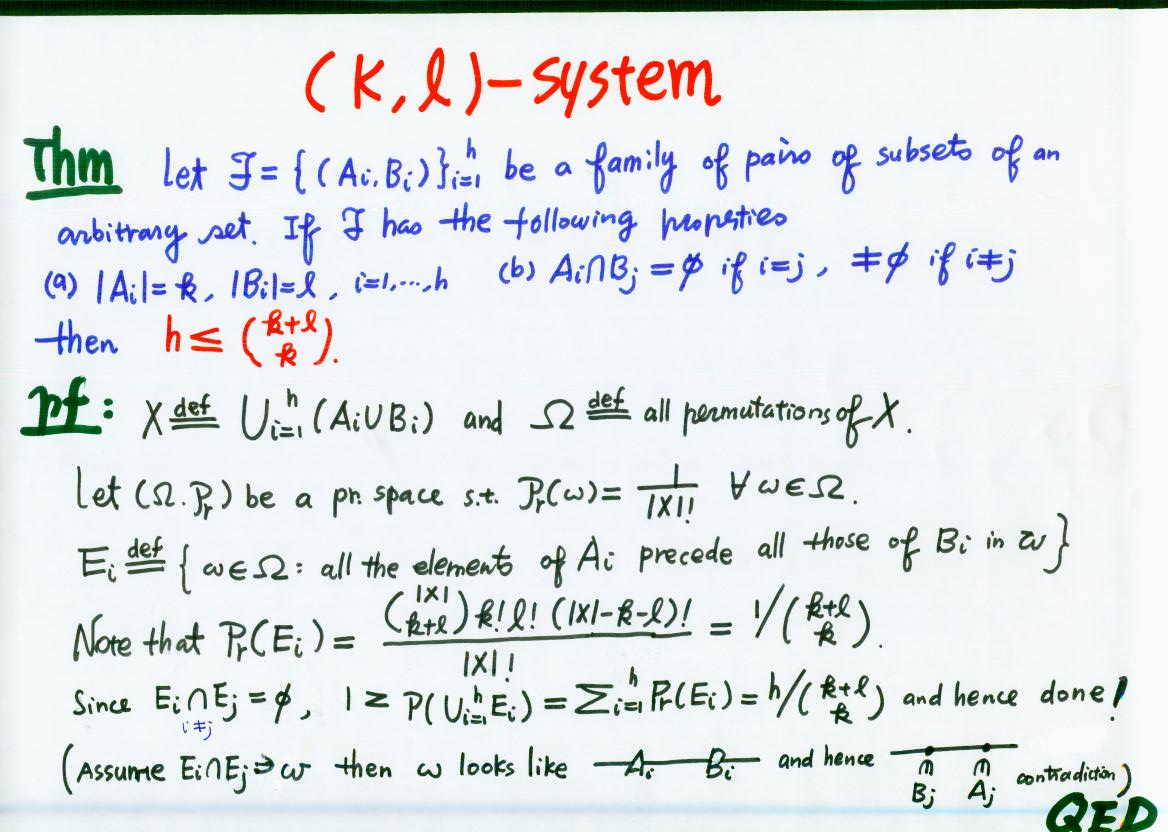 (k, l)-system
Thm Let F = { (Ai, Bi) }_{i=1}^{h} be a family of pairs of subsets of an
arbitrary set. If F has the following properties
(a) |Ai|= k, |Bi|= l, i=1,...,h (b) Ai∩Bj = ∅ if i=j, ≠∅ if i≠j
then h ≤ \binom{k+l}{k}.
pf: X \overset{def}{=} ∪_{i=1}^{h} (Ai∪Bi) and Ω \overset{def}{=} all permutations of X.
Let (Ω. Pr) be a pr. space s.t. Pr(ω) = \frac{1}{|X|!} ∀ ω∈Ω.
Ei \overset{def}{=} { ω∈Ω: all the elements of Ai precede all those of Bi in ω}
Note that Pr(Ei) = \frac{\binom{|X|}{k+l} k! l! (|X|-k-l)!}{|X|!} = 1/\binom{k+l}{k}.
Since Ei ∩ Ej = ∅, 1 ≥ P(∪_{i=1}^{h} Ei) = Σ_{i=1}^{h} Pr(Ei) = h/\binom{k+l}{k} and hence done!
i≠j
(Assume Ei∩Ej ∋ ω then ω looks like Ai Bi and hence ∩ ∩ contradiction)
Bj Aj
QED